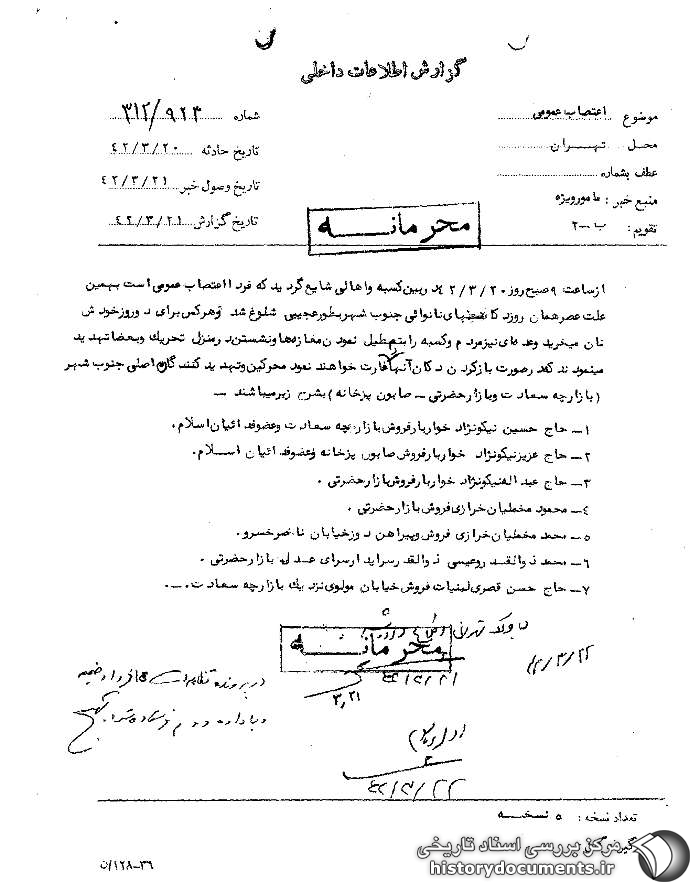 گزارش اطلاعات داخلی
موضوع اعتصاب عمومی
محل تهران
عطف بشماره
منبع خبر: مامورویژه
تقویم: ب-۲
شماره ۳۱۲/۹۲۳
تاریخ حادثه ۴۲/۳/۲۰
تاریخ وصول خبر ۴۲/۳/۲۱
تاریخ گزارش ۴۲/۳/۲۱
محرمانه
ازساعت ۹صبح روز ۴۲/۳/۲۰ دربین کسبه واهالی شایع گردید که فردا اعتصاب عمومی است بهمین
علت عصرهمان روزدکانهای نانوائی جنوب شهربطورعجیبی شلوغ شد وهرکس برای دوروزخودش
نان میخرید وعده‌ای نیزمردم وکسبه را بتعطیل نمودن مغازه‌ها ونشستن درمنزل تحریک وبعضا تهدید
مینمودند که درصورت بازکردن دکان آنها غارت خواهند نمود محرکین وتهدید کنندگان اصلی جنوب شهر
(بازارچه سعادت وبازارحضرتی ـ صابون پزخانه) بشرح زیرمیباشند ـ
۱ـ حاج حسین نیکونژاد خواربارفروش بازارچه سعادت وعضوفدائیان اسلام.
۲ـ حاج عزیزنیکونژاد خواربارفروش صابون پزخانه وعضوفدائیان اسلام.
۳ـ حاج عبداله نیکونژاد خواربارفروش بازارحضرتی .
۴ـ محمود مخطیان خرازی فروش بازارحضرتی .
۵ـ محمد مخطیان خرازی فروش وپیراهن دوزخیابان ناصرخسرو.
۶ـ محمد ذوالقدروعیسی ذوالقدرسرایدارسرای عدل بازارحضرتی .
۷ـ حاج حسن قصری لبنیات فروش خیابان مولوی نزدیک بازارچه سعادت.
محرمانه
۴۲/۳/۲۲
۴۲/۳/۲۱
۳٫۲۱
در پرونده تظاهرات ۱۵ خرداد ضمیمه
۴۲/۳/۲۲
تعداد نسخه : ۵ نسخه
۳۶-۱۲۸/ن
مرکز بررسی اسناد تاریخی
historydocuments.ir